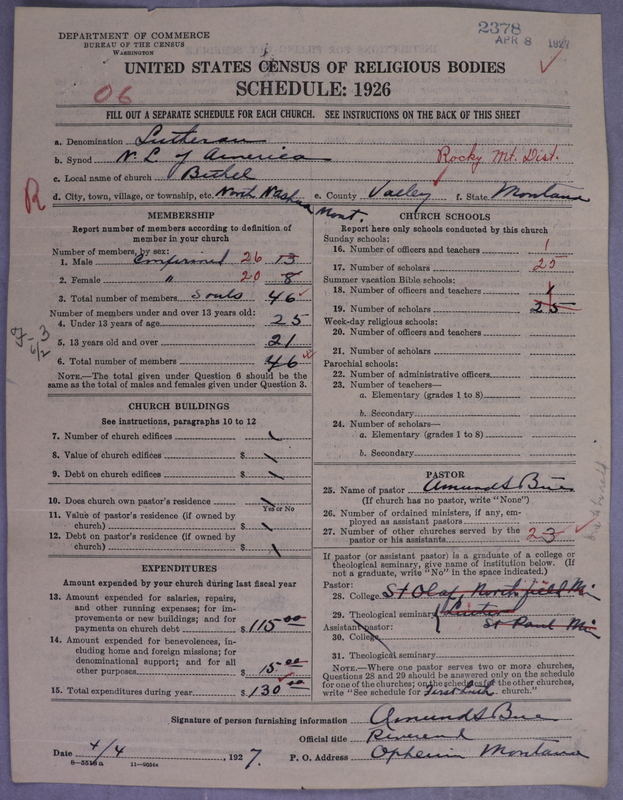 2378
APR 8 1927
DEPARTMENT OF COMMERCE
BUREAU OF THE CENSUS
WASHINGTON
UNITED STATES CENSUS OF RELIGIOUS BODIES
SCHEDULE: 1926
06
FILL OUT A SEPARATE SCHEDULE FOR EACH CHURCH. SEE INSTRUCTIONS ON THE BACK OF THIS SHEET
a. Denomination Lutheran
b. Synod N. L. of America Rocky Mt. Dist.
c. Local name of church Bethel
R
d. City, town, village, or township, etc. North Mont. e. County Valley f. State Montana
MEMBERSHIP
Report number of members according to definition of member in your church
Number of members, by sex:
1. Male Confirmed 26 13
2. Female " 20 8
3. Total number of members Souls 46
Number of members under and over 13 years old:
4. Under 13 years of age 25
5. 13 years old and over 21
6. Total number of members 46
NOTE.—The total given under Question 6 should be the same as the total of males and females given under Question 3.
CHURCH BUILDINGS
See instructions, paragraphs 10 to 12
7. Number of church edifices
8. Value of church edifices $
9. Debt on church edifices $
10. Does church own pastor's residence
Yes or No
11. Value of pastor's residence (if owned by church) $
12. Debt on pastor's residence (if owned by church) $
EXPENDITURES
Amount expended by your church during last fiscal year
13. Amount expended for salaries, repairs, and other running expenses; for improvements or new buildings; and for payments on church debt $ 115 00
14. Amount expended for benevolences, including home and foreign missions; for denominational support; and for all other purposes $ 15 00
15. Total expenditures during year $ 130 00
CHURCH SCHOOLS
Report here only schools conducted by this church
Sunday schools:
16. Number of officers and teachers 1
17. Number of scholars 25
Summer vacation Bible schools:
18. Number of officers and teachers 1
19. Number of scholars 25
Week-day religious schools:
20. Number of officers and teachers
21. Number of scholars
Parochial schools:
22. Number of administrative officers
23. Number of teachers—
a. Elementary (grades 1 to 8)
b. Secondary
24. Number of scholars—
a. Elementary (grades 1 to 8)
b. Secondary
PASTOR
25. Name of pastor Amund S Bue
(If church has no pastor, write "None")
26. Number of ordained ministers, if any, employed as assistant pastors
27. Number of other churches served by the pastor or his assistants 2 3
If pastor (or assistant pastor) is a graduate of a college or theological seminary, give name of institution below. (If not a graduate, write "No" in the space indicated.)
Pastor:
28. College St Olaf, Northfield Mi
29. Theological seminary Luther
Assistant pastor: St Paul Mi
30. College
31. Theological seminary
NOTE.—Where one pastor serves two or more churches, Questions 28 and 29 should be answered only on the schedule for one of the churches; on the schedules for the other churches, write "See schedule for First Luth church."
Signature of person furnishing information Amund S Bue
Official title Reverend
Date 4/4, 1927. P. O. Address Opheim Montana
8—5518a 11—9054a